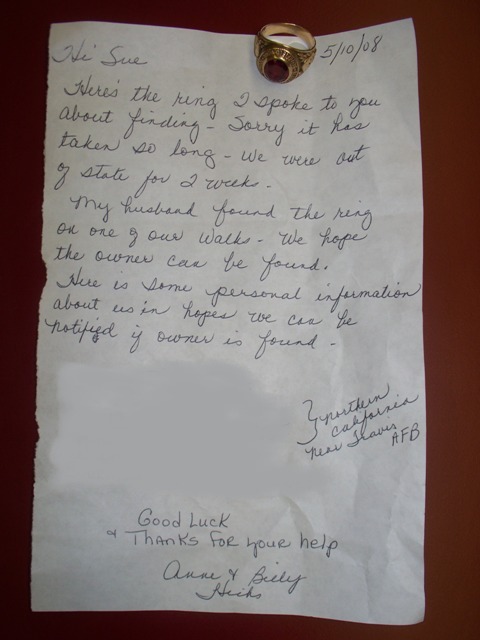 Hi Sue 5/10/08
Here's the ring I spoke to you
about finding - Sorry it has
taken so long - We were out
of state for 2 weeks.
My husband found the ring
on one of our walks - We hope
the owner can be found.
Here is some personal information
about us in hopes we can be
notified if owner is found -
} northern
California
near Travis
AFB
Good Luck
& Thanks for your help
Anne & Billy
Hicks